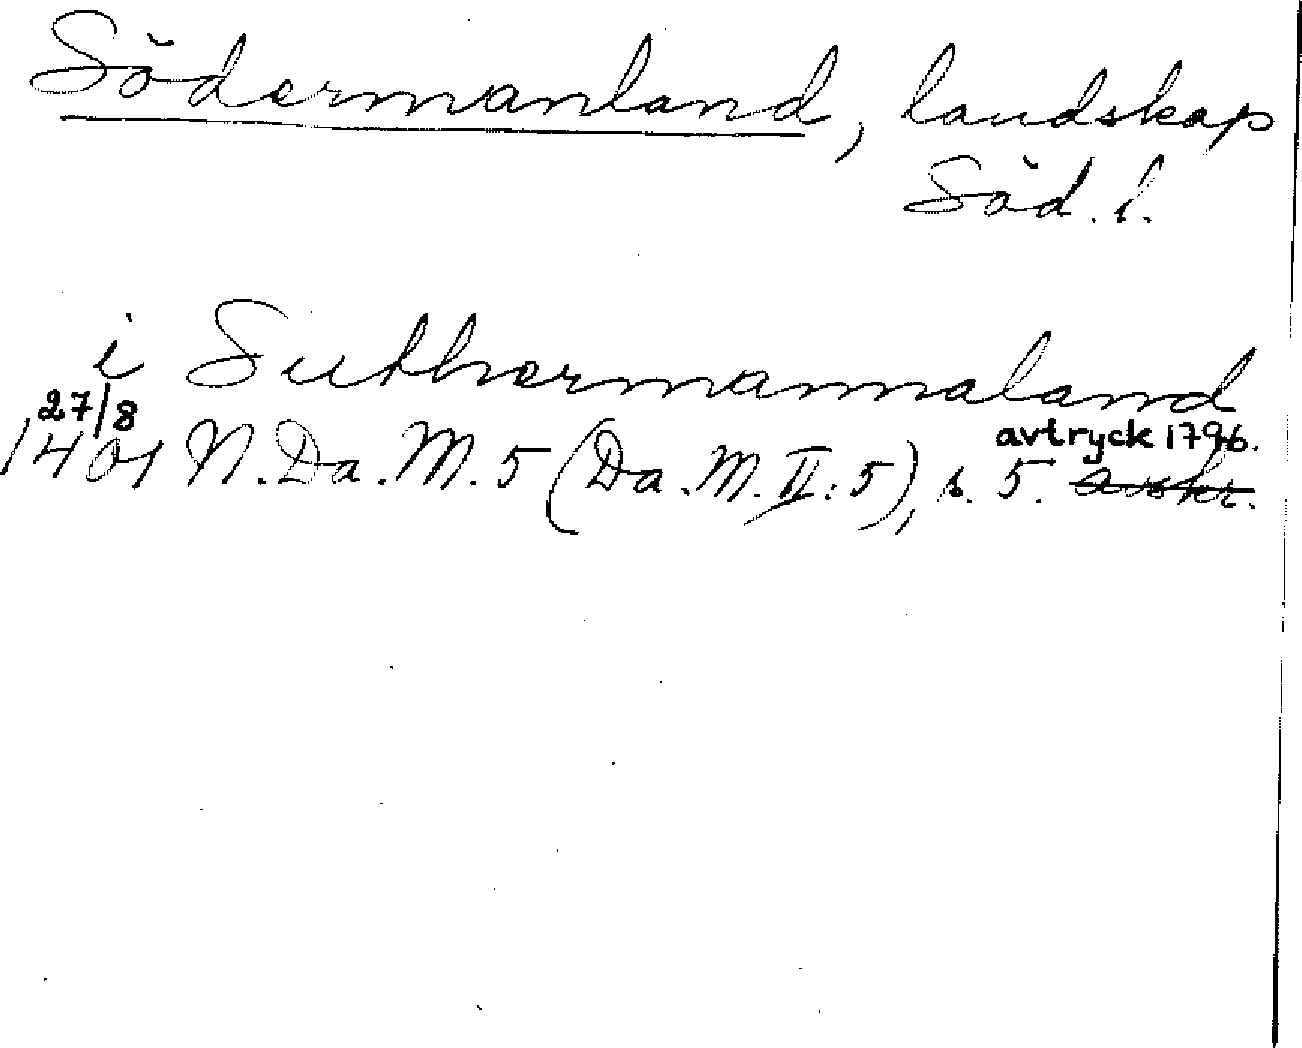 Södermanland, landskap
Söd. l.
i Suthermannaland
27/8
1401 N. Da. M. 5 (Da. M. II: 5), s. 5. avtryck 1796. avskr.